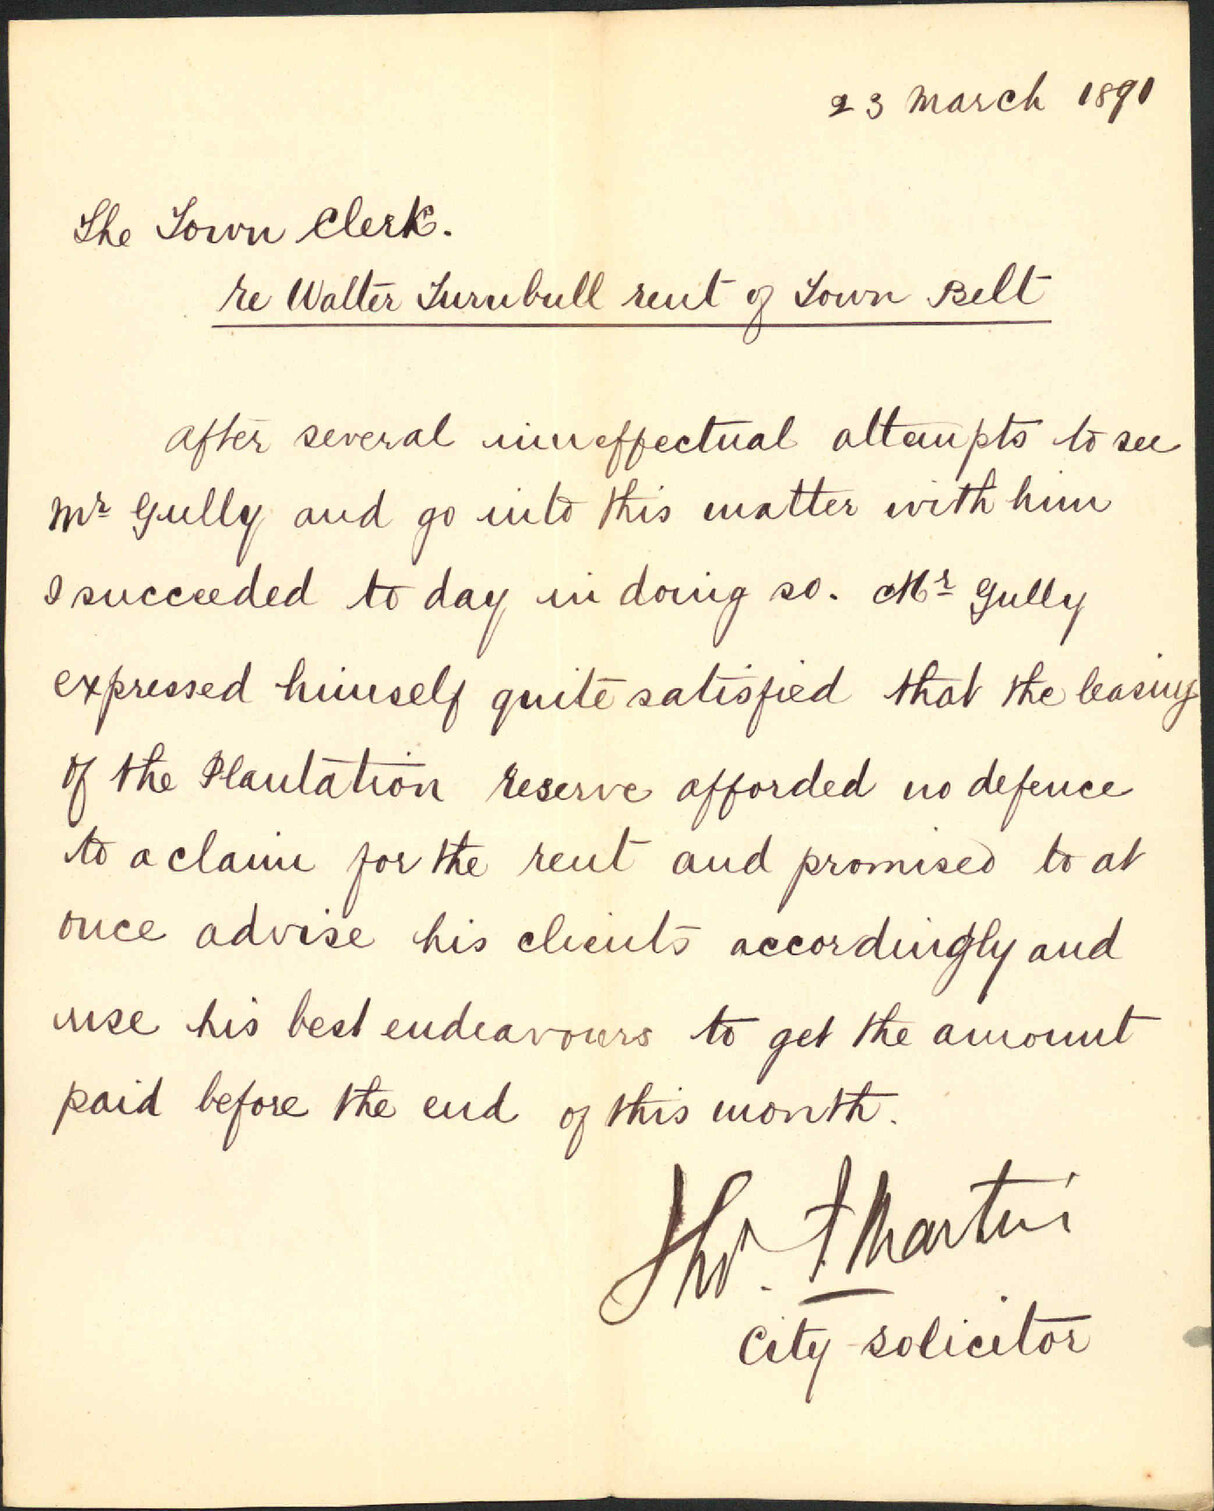 23 March 1891
The Town Clerk.
re Walter Turnbull rent of Town Belt
After several inneffectual attempts to see
Mr Gully and go into this matter with him
I succeeded to day in doing so. Mr Gully
expressed himself quite satisfied that the leasing
of the Plantation reserve afforded no defence
to a claim for the rent and promised to at
once advise his clients accordingly and
use his best endeavours to get the amount
paid before the end of this month.
Thos. F Martin
City Solicitor